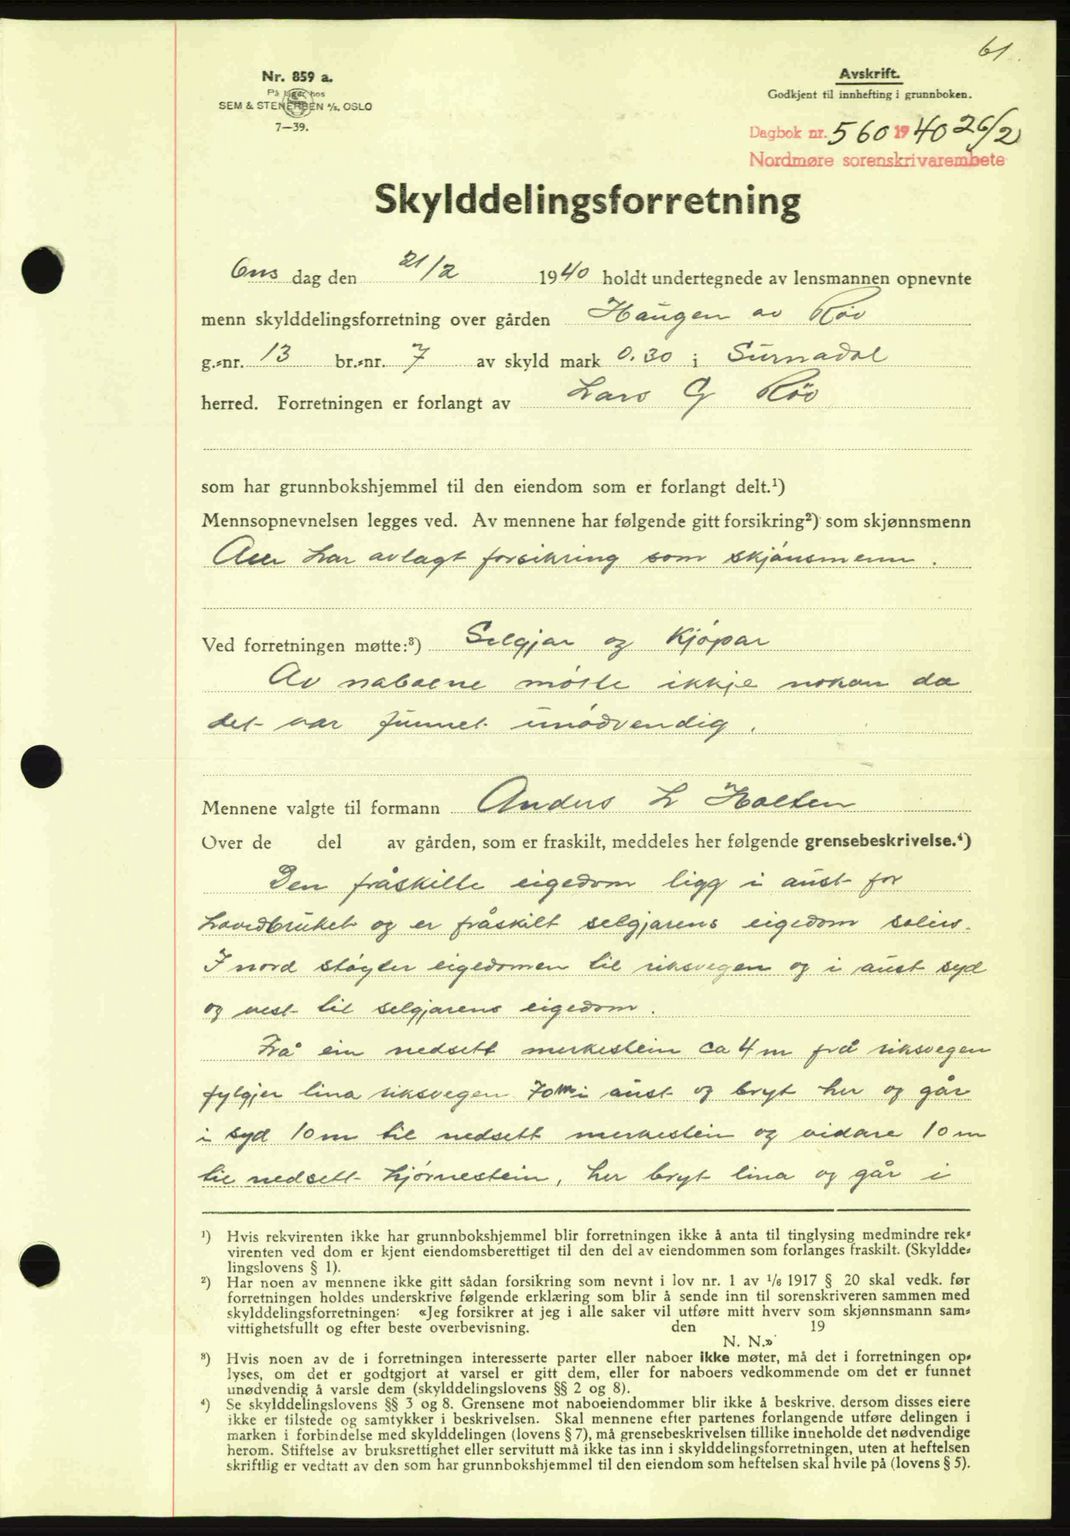 61.
Nr. 859 a.
På lager hos
SEM & STENERSEN A/S, OSLO
7—39.
Avskrift.
Godkjent til innhefting i grunnboken.
Dagbok nr. 560 1940 26/2
Nordmøre sorenskrivarembete
Skylddelingsforretning
Ons dag den 21/2 1940 holdt undertegnede av lensmannen opnevnte
menn skylddelingsforretning over gården Haugen av Røv
g.-nr. 13 br.-nr. 7 av skyld mark 0.30 i Surnadal
herred. Forretningen er forlangt av Lars G Røv
som har grunnbokshjemmel til den eiendom som er forlangt delt.¹)
Mennsopnevnelsen legges ved. Av mennene har følgende gitt forsikring²) som skjønnsmenn
Alle har avlagt forsikring som skjønsmenn.
Ved forretningen møtte:³) Selgjar og Kjøpar
Av naboene møtte ikkje nokon da
det var funnet unødvendig.
Mennene valgte til formann Anders L Holten
Over de del av gården, som er fraskilt, meddeles her følgende grensebeskrivelse.⁴)
Den fråskilte eigedom ligg i aust for
hovedbruket og er fråskilt selgjarens eigedom
I nord støyter eigedomen til riksvegen og i aust syd
og vest til selgjarens eigedom.
Frå ein nedsett merkestein ca 4 m frå riksvegen
fylgjer lina riksvegen 70 m i aust og bryt her og går
i syd 10 m til nedsett merkestein og vidare 10 m
til nedsett hjørnestein, her bryt lina og går i
¹) Hvis rekvirenten ikke har grunnbokshjemmel blir forretningen ikke å anta til tinglysing medmindre rek-
virenten ved dom er kjent eiendomsberettiget til den del av eiendommen som forlanges fraskilt. (Skyldde-
lingslovens § 1).
²) Har noen av mennene ikke gitt sådan forsikring som nevnt i lov nr. 1 av 1/6 1917 § 20 skal vedk. før
forretningen holdes underskrive følgende erklæring som blir å sende inn til sorenskriveren sammen med
skylddelingsforretningen: «Jeg forsikrer at jeg i alle saker vil utføre mitt hverv som skjønnsmann sam-
vittighetsfullt og efter beste overbevisning. den 19
N. N.»
³) Hvis noen av de i forretningen interesserte parter eller naboer ikke møter, må det i forretningen op-
lyses, om det er godtgjort at varsel er gitt dem, eller for naboers vedkommende om det er funnet
unødvendig å varsle dem (skylddelingslovens §§ 2 og 8).
⁴) Se skylddelingslovens §§ 3 og 8. Grensene mot naboeiendommer blir ikke å beskrive, dersom disses eiere
ikke er tilstede og samtykker i beskrivelsen. Skal mennene efter partenes forlangende utføre delingen i
marken i forbindelse med skylddelingen (lovens § 7), må grensebeskrivelsen tillike inneholde det nødvendige
herom. Stiftelse av bruksrettighet eller servitutt må ikke tas inn i skylddelingsforretningen, uten at heftelsen
skriftlig er vedtatt av den som har grunnbokshjemmel til den eiendom som heftelsen skal hvile på (lovens § 5).